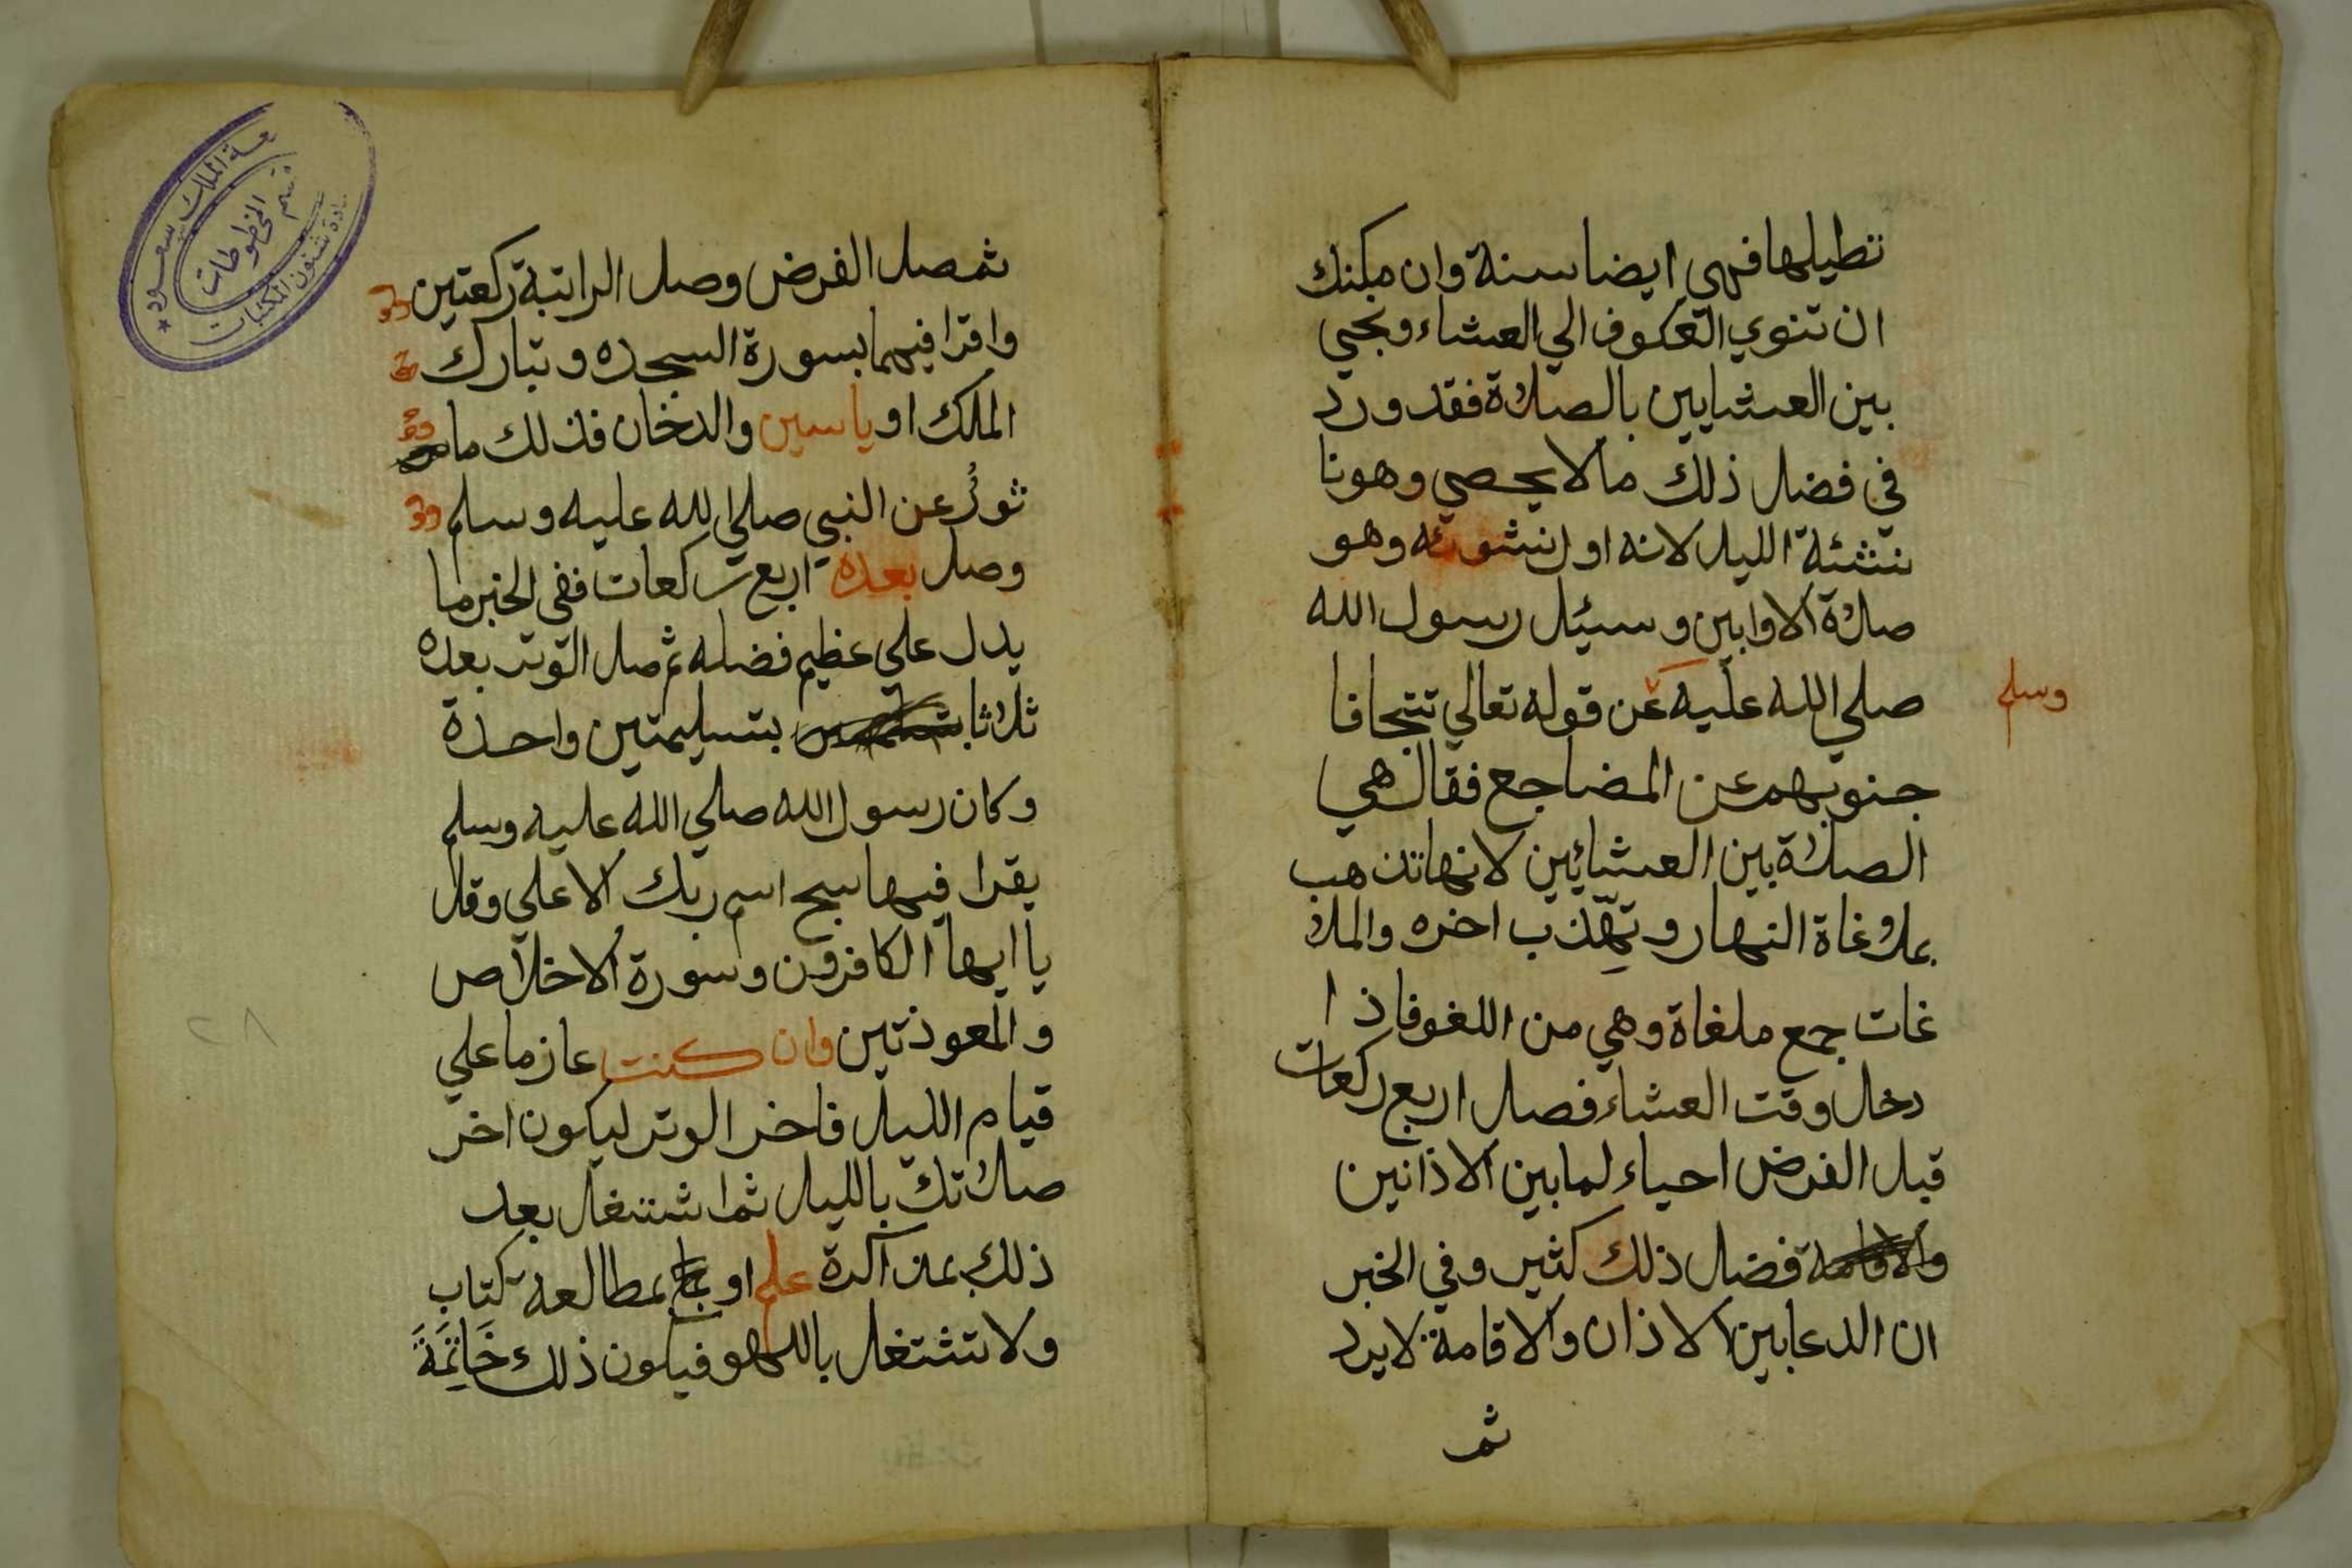 تطيلها فهي ايضا سنة وان مكنك
ان تنوي العكوف الي العشاء وتحيي
بين العشايين بالصلاة فقد ورد
في فضل ذلك ما لا يحصي وهو نا
نشئة الليل لانه اول نشوئه وهو
صلاة الاوابين وسيئل رسول الله
صلي الله عليه عن قوله تعالي تتجافا
وسلم
جنوبهم عن المضاجع فقال هي
الصلاة بين العشائين لانها تذهب
بملاغاة النهار وتهذب اخره والملا
غات جمع ملغاة وهي من اللغو فاذا
دخل وقت العشاء فصل اربع ركعات
قبل الفرض احياء لما بين الاذانين
والاقامة فضل ذلك كثير وفي الخبر
ان الدعا بين الاذان والاقامة لا يرد
ثم
ثم صل الفرض وصل الراتبة ركعتين
واقرا فيهما بسورة السجده وتبارك
الملك او ياسين والدخان فذلك ما
ثورُ عن النبي صلي الله عليه وسلم
وصل بعده اربع ركعات ففي الخبر ما
يدل علي عظيم فضله ثم صل الوتر بعده
ثلاثا بتسليمتين واحدة
وكان رسول الله صلي الله عليه وسلم
يقرا فيها سبح اسم ربك الاعلي وقل
يا ايها الكافرون وسورة الاخلاص
والمعوذتين وان كنت عازما علي
قيام الليل فاخر الوتر ليكون اخر
صلاتك بالليل ثم اشتغل بعد
ذلك بمذاكرة علم او بمطالعة كتاب
ولا تشتغل باللهو فيكون ذلك خَاتِمَةَ
٢٨
جامعة الملك سعود
قسم المخطوطات
عمادة شئون المكتبات